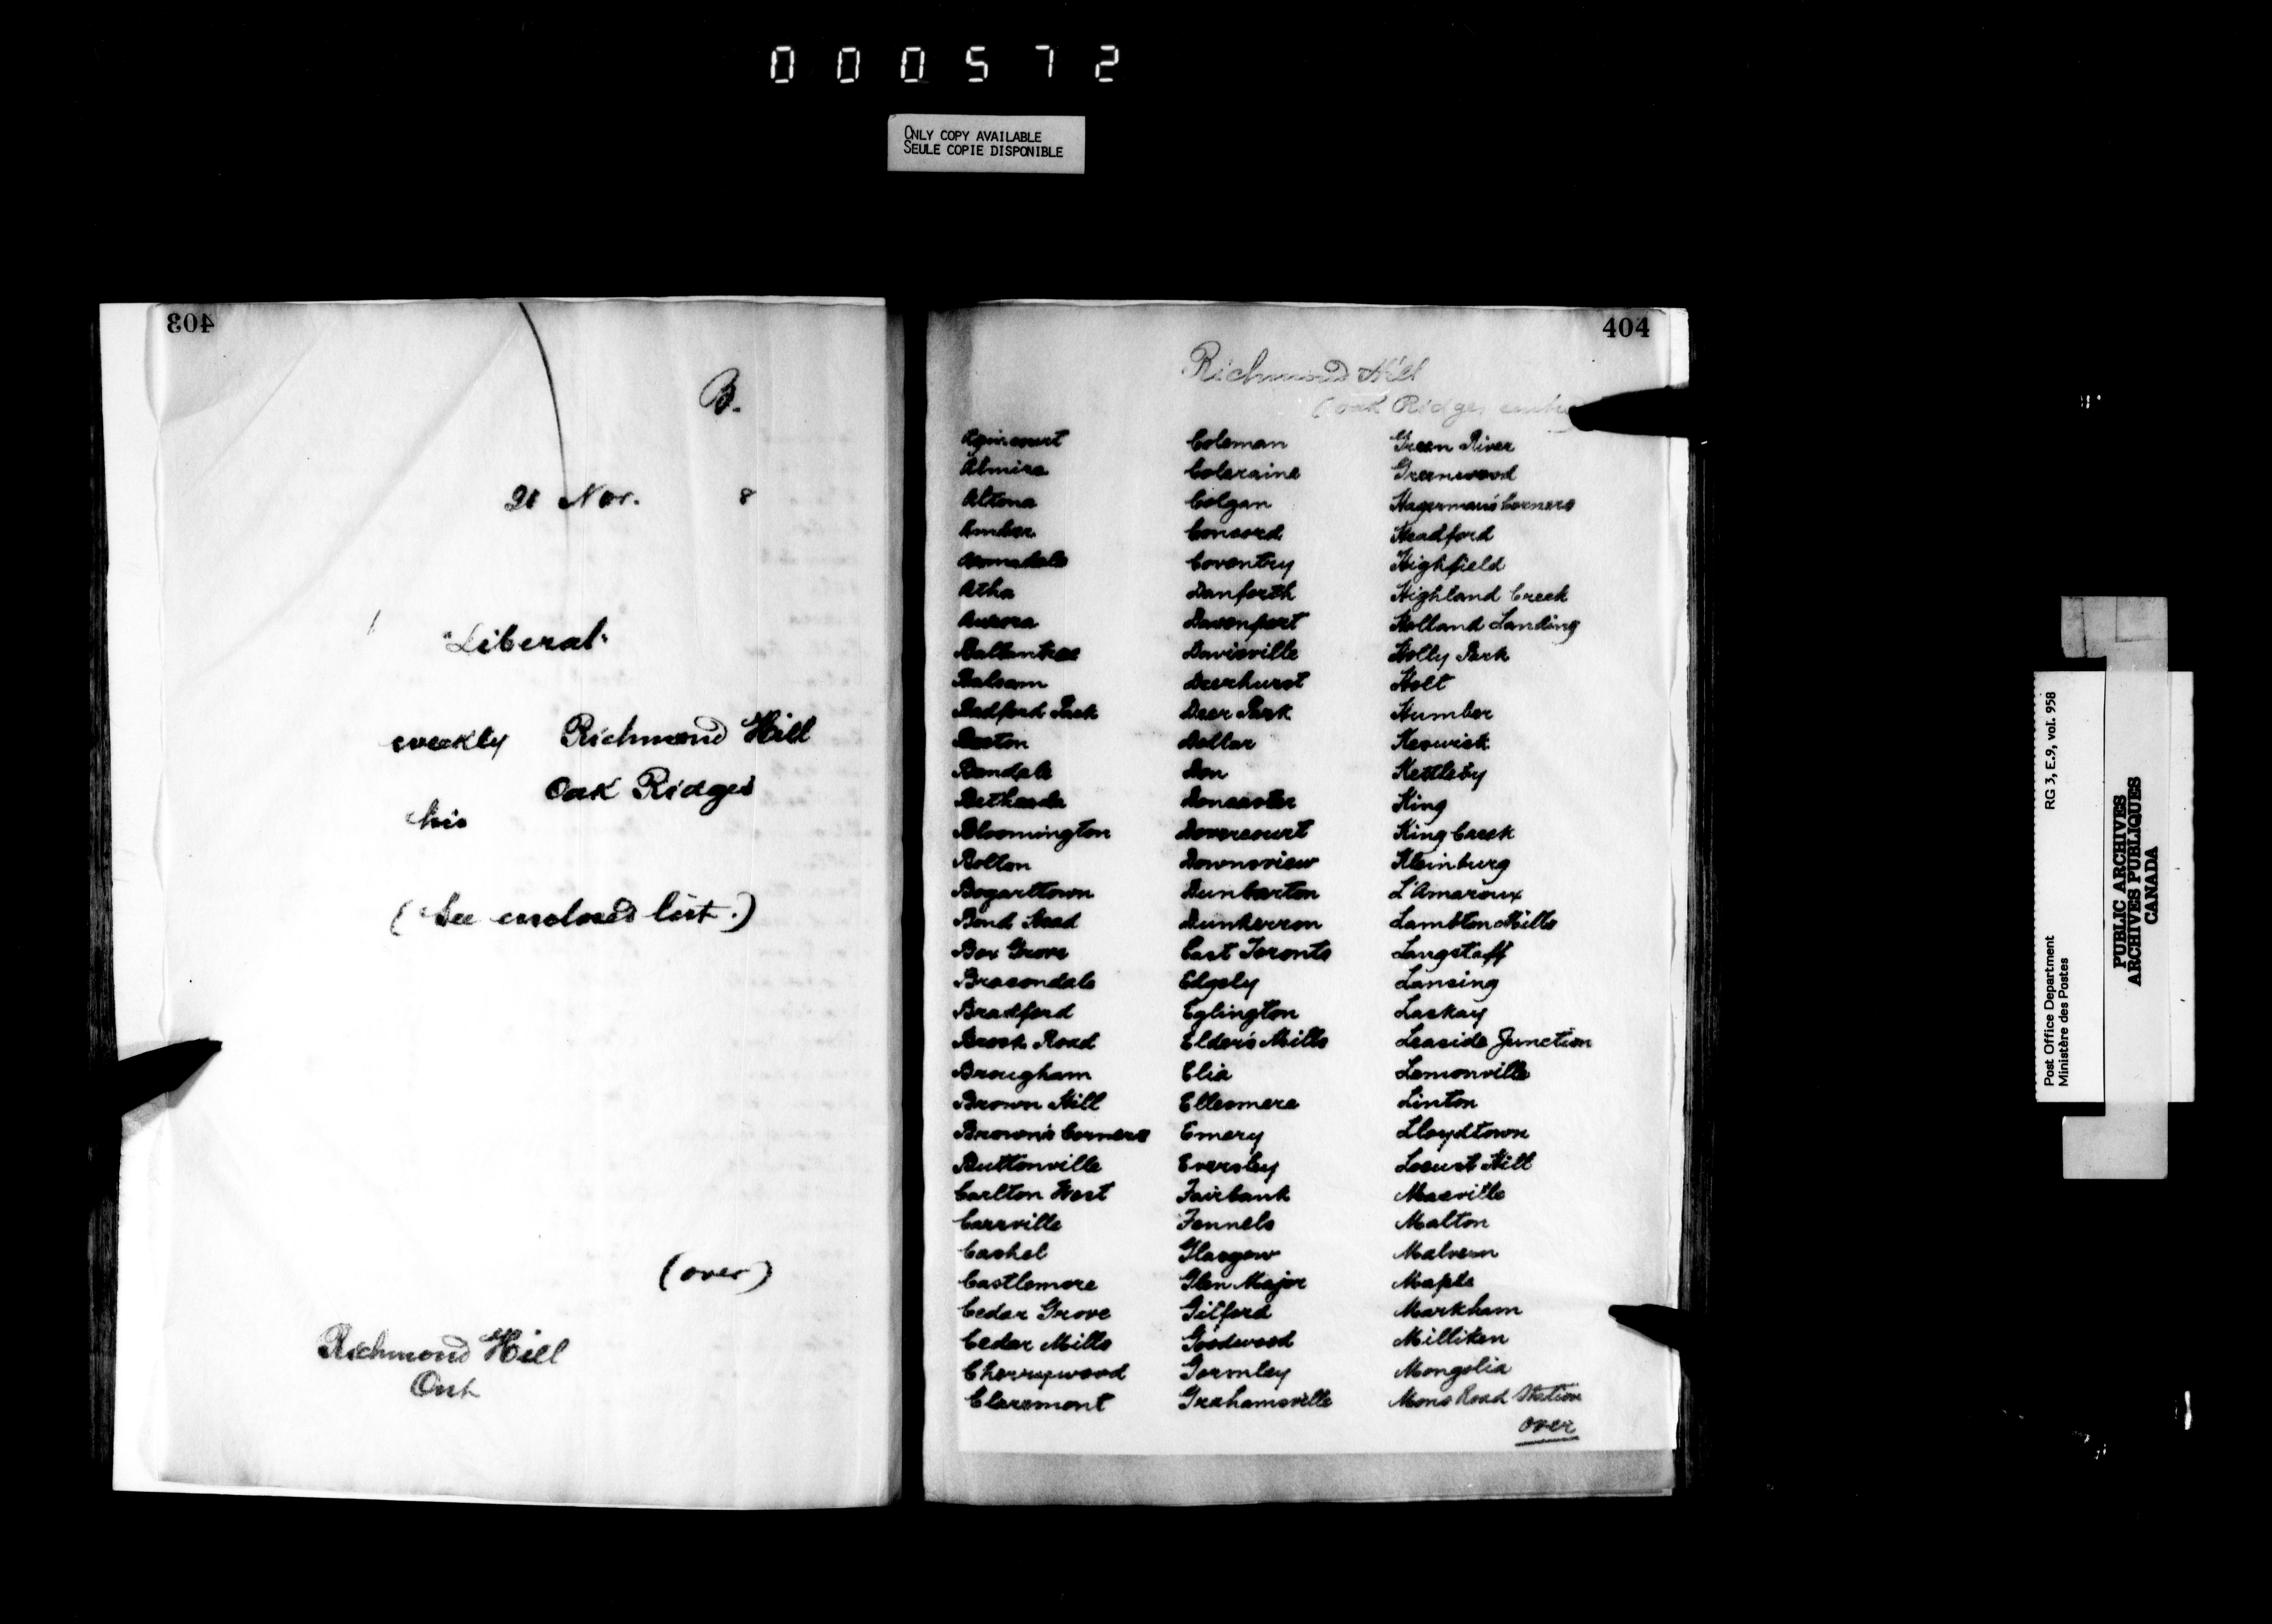 000572
ONLY COPY AVAILABLE
SEULE COPIE DISPONIBLE
403
B.
21 Nov. 8
"Liberal"
weekly Richmond Hill
Oak Ridges
his
(See enclosed list.)
(over)
Richmond Hill
Ont
404
Richmond Hill
(Oak Ridges
Agincourt
Almira
Altona
Amber
Armadale
Atha
Aurora
Ballantrae
Balsam
Bedford Park
Beeton
Bendale
Bethesda
Bloomington
Bolton
Bogarttown
Bond Head
Box Grove
Bracondale
Bradford
Brock Road
Brougham
Brown Hill
Brown's Corners
Buttonville
Carlton West
Carrville
Cashel
Castlemore
Cedar Grove
Cedar Mills
Cherrywood
Claremont
Coleman
Coleraine
Colgan
Concord
Coventry
Danforth
Davenport
Davisville
Deerhurst
Deer Park
Dollar
Don
Doncaster
Dovercourt
Downsview
Dunbarton
Dunkerron
East Toronto
Edgely
Eglington
Elder's Mills
Elia
Ellesmere
Emery
Eversley
Fairbank
Fennels
Glasgow
Glen Major
Gilford
Goodwood
Gormley
Grahamsville
Green River
Greenwood
Hagerman's Corners
Headford
Highfield
Highland Creek
Holland Landing
Holly Park
Holt
Humber
Keswick
Kettleby
King
King Creek
Kleinburg
L'Amaroux
Lambton Mills
Langstaff
Lansing
Laskay
Leaside Junction
Lemonville
Linton
Lloydtown
Locust Hill
Macville
Malton
Malvern
Maple
Markham
Milliken
Mongolia
Mono Road Station
over
Post Office Department RG 3, E.9, vol. 958
Ministère des Postes
PUBLIC ARCHIVES
ARCHIVES PUBLIQUES
CANADA